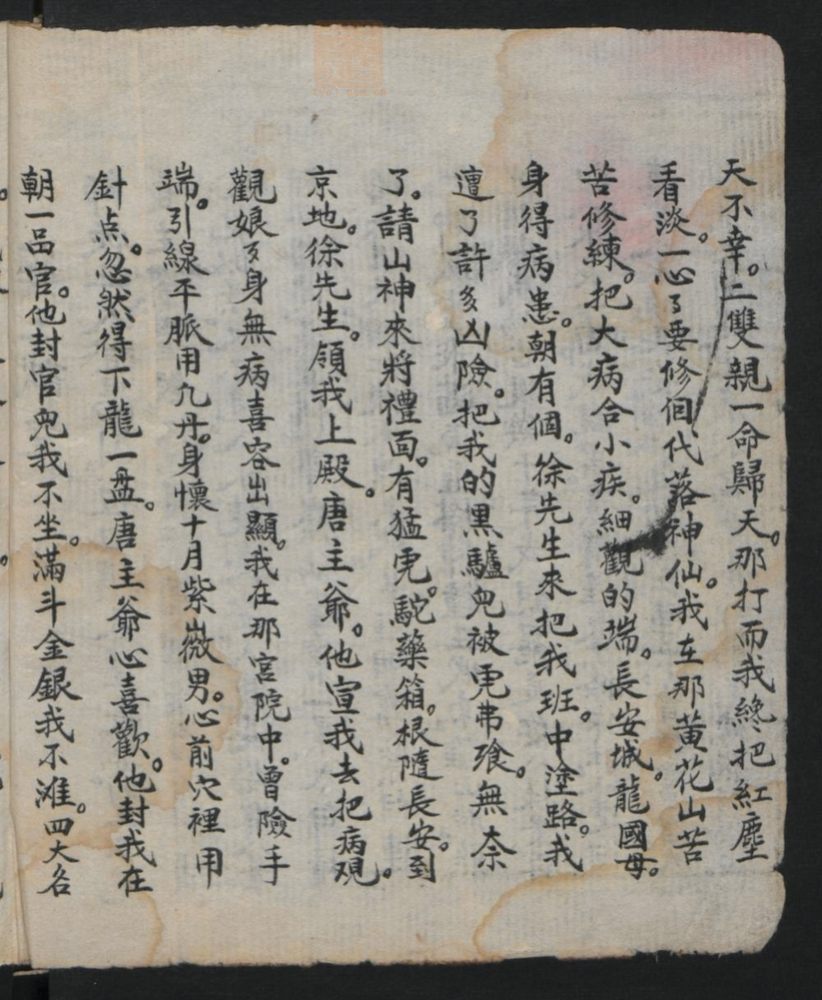 天不幸。二雙親一命歸天。那打而我終把紅塵
看淡。一心了要修個代落神仙。我在那黃花山苦
苦修練。把大病合小疾。細觀的端。長安城。龍國母。
身得病患。朝有個。徐先生來把我班。中塗路。我
遭了許多凶險。把我的黑驢皃被虎弗飱。無柰
了。請山神來將禮面。有猛虎。駝藥箱。根隨長安。到
京地。徐先生。領我上殿。唐主爺。他宣我去把病观。
觀娘ㄡ身無病喜容出顯。我在那宮院中。曾險手
端。引線平脈用九丹。身懷十月紫微男。心前穴裡用
針点。忽然得下龍一盘。唐主爺心喜歡。他封我在
朝一品官。他封官皃我不坐。滿斗金銀我不滩。四大名